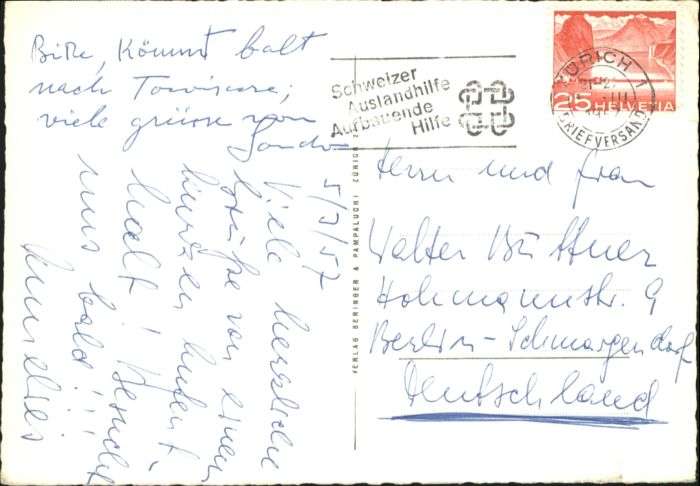 Bitte, Kömmt balt
nach
viele grüsse von
Sandro
5/3/57
Viele herzliche
Grüße von einem
kurzen
halt! Besucht
uns bald!!!
Annelies
VERLAG BERINGER & PAMPALUCHI ZÜRICH
Schweizer
Auslandhilfe
Aufbauende
Hilfe
ZÜRICH 1
BRIEFVERSAND
25 HELVETIA
Herrn und Frau
Walter Büttner
Hohmannstr. 9
Berlin-Schmargendorf
Deutschland